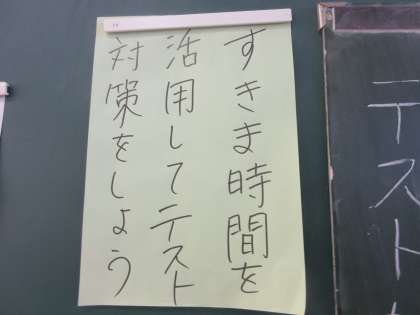 すきま時間を
活用してテスト
対策をしよう
テスト